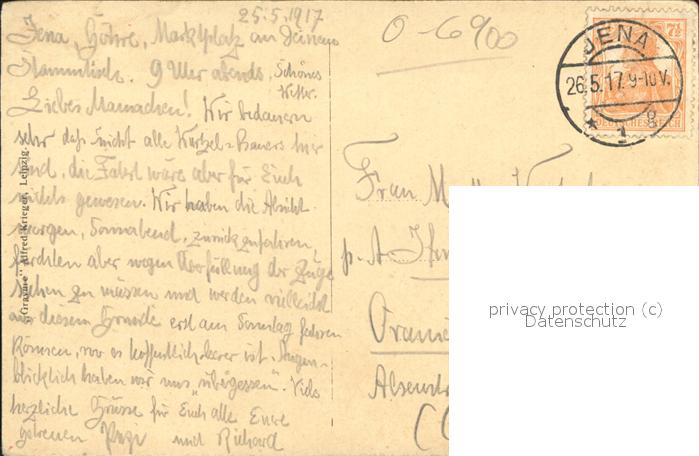 25.5.1917
Jena, Göhre, Marktplatz an Deinem
Stammtisch. 9 Uhr abends, Schönes
Wetter.
Liebes Mamachen! Wir bedauern
sehr daß nicht alle Kurbel-Bauers hier
sind, die Fahrt wäre aber für Euch
nichts gewesen. Wir haben die Absicht
morgen, Sonnabend, zurückzufahren,
fürchten aber wegen Überfüllung der Züge
stehen zu müssen und werden vielleicht
aus diesem Grunde erst am Sonntag fahren
können, wo es hoffentlich leerer ist. Augen-
blicklich haben wir uns "übergessen". Viele
herzliche Grüsse für Euch alle Eure
getreuen und Richard
"Graphie" Alfred Krieger, Leipzig.
0-6900
7½
DEUTSCHES REICH
JENA
26.5.17.9-10V.
* 1 g
Frau
p. A.
Oranie
Alsenstr
privacy protection (c)
Datenschutz